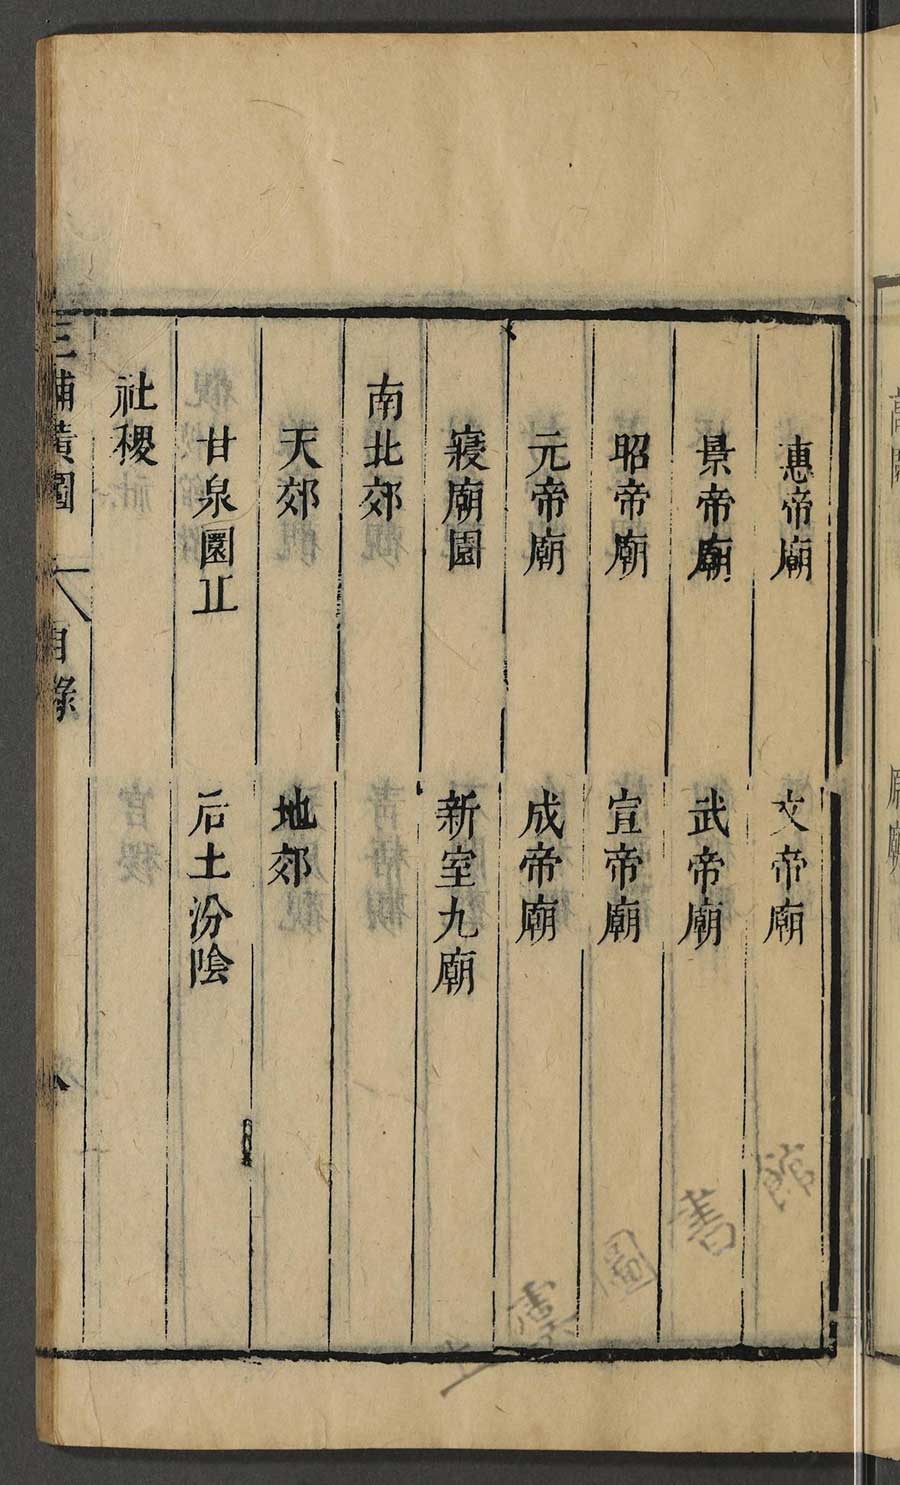 惠帝廟 文帝廟
景帝廟 武帝廟
昭帝廟 宣帝廟
元帝廟 成帝廟
寢廟園 新室九廟
南北郊
天郊 地郊
甘泉圜丠 后土汾陰
社稷
三輔黃圖 目錄 八
圖書館